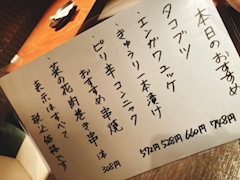 本日のおすすめ
・タコブツ 748円
・エンガワユッケ 660円
・きゅうり一本漬け 528円
・ピリ辛コンニャク 572円
おすすめ串焼
・菜の花肉巻き串 1本 308円
表示はすべて税込価格です